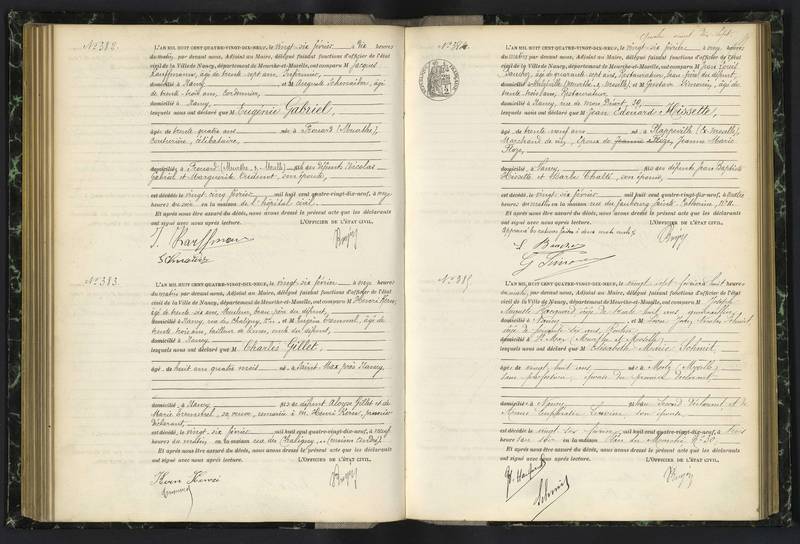 N° 382.
L'AN MIL HUIT CENT QUATRE-VINGT-DIX-NEUF, le vingt-six février, à dix heures
du matin, par devant nous, Adjoint au Maire, délégué faisant fonctions d'officier de l'état
civil de la Ville de Nancy, département de Meurthe-et-Moselle, ont comparu M Jacques
Kauffmann, âgé de trente-sept ans, Infirmier,
domicilié à Nancy et M Auguste Schmeitzer, âgé
de trente-trois ans, Cordonnier,
domicilié à Nancy,
lesquels nous ont déclaré que M Eugénie Gabriel,
âgé de trente-quatre ans né à Frouard (Meurthe),
couturière, célibataire,
domicilié à Frouard (Meurthe-&-Moselle) des défunts Nicolas
Gabriel et Marguerite son épouse,
est décédé, le vingt-cinq février mil huit cent quatre-vingt-dix-neuf, à onze
heures du soir en la maison de l'hôpital civil.
Et après nous être assuré du décès, nous avons dressé le présent acte que les déclarants
ont signé avec nous après lecture. L'OFFICIER DE L'ÉTAT CIVIL,
N° 383.
L'AN MIL HUIT CENT QUATRE-VINGT-DIX-NEUF, le vingt-six février à onze heures
du matin, par devant nous, Adjoint au Maire, délégué faisant fonctions d'officier de l'état
civil de la Ville de Nancy, département de Meurthe-et-Moselle, ont comparu M Henri Kern,
âgé de trente-six ans, beau-père du défunt,
domicilié à Nancy, rue de Chaligny, et M Eugène âgé de
trente-trois ans, tailleur de limes, oncle du défunt,
domicilié à Nancy
lesquels nous ont déclaré que M Charles Gillet,
âgé de huit ans quatre mois né à Saint-Max près Nancy,
domicilié à Nancy fils de défunt Aloyse Gillet et de
Marie sa veuve, remariée à M. Henri Kern, premier
déclarant,
est décédé, le vingt-six février mil huit cent quatre-vingt-dix-neuf, à neuf
heures du matin en la maison rue de Chaligny,
Et après nous être assuré du décès, nous avons dressé le présent acte que les déclarants
ont signé avec nous après lecture. L'OFFICIER DE L'ÉTAT CIVIL,
Kern Henri
quatre vingt dix sept
N° 384.
L'AN MIL HUIT CENT QUATRE-VINGT-DIX-NEUF, le vingt-six février à onze heures
du matin par devant nous, Adjoint au Maire, délégué faisant fonctions d'officier de l'état
civil de la Ville de Nancy, département de Meurthe-et-Moselle, ont comparu M Jean Louis
âgé de quarante-sept ans, Restaurateur, beau-frère du défunt,
domicilié à et M Gustave âgé de
trente-trois ans, Restaurateur
domicilié à Nancy, rue de Mon Désert, 39,
lesquels nous ont déclaré que M Jean Edouard Hissette,
âgé de trente-neuf ans né à Plappeville
Marchand de vin, époux de Jeanne Marie
domicilié à Nancy, fils des défunts Jean Baptiste
Hissette et Marie son épouse,
est décédé, le vingt-six février mil huit cent quatre-vingt-dix-neuf, à
heures du matin en la maison rue du faubourg Sainte-Catherine, N° 11.
Et après nous être assuré du décès, nous avons dressé le présent acte que les déclarants
ont signé avec nous après lecture. L'OFFICIER DE L'ÉTAT CIVIL,
N° 385.
L'AN MIL HUIT CENT QUATRE-VINGT-DIX-NEUF, le vingt-sept février huit heures
du matin, par devant nous, Adjoint au Maire, délégué faisant fonctions d'officier de l'état
civil de la Ville de Nancy, département de Meurthe-et-Moselle, ont comparu M Joseph
Auguste âgé de trente-huit ans,
domicilié à Nancy et M Schmit,
âgé de soixante-six ans,
domicilié à St Max (Meurthe et Moselle)
lesquels nous ont déclaré que M Elisabeth Marie Schmit,
âgé de vingt-huit ans né à (Moselle)
sans profession, épouse du premier déclarant
domicilié à Nancy fille du second déclarant et de
son épouse
est décédé, le vingt-six février mil huit cent quatre-vingt-dix-neuf, à trois
heures du soir en la maison Place du Marché N° 30
Et après nous être assuré du décès, nous avons dressé le présent acte que les déclarants
ont signé avec nous après lecture. L'OFFICIER DE L'ÉTAT CIVIL,
Schmit